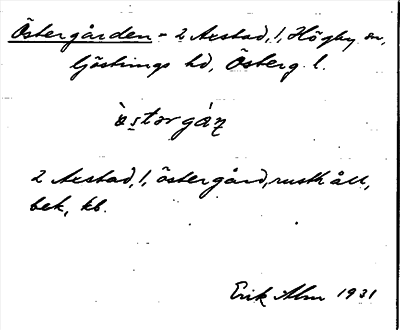 Östergården - 2 Axstad, 1, Högby sn,
Göstrings hd, Österg. l.
östərgáɳ
2 Axstad, 1, östergård, rusthåll,
bek, kb.
Erik Alm 1931